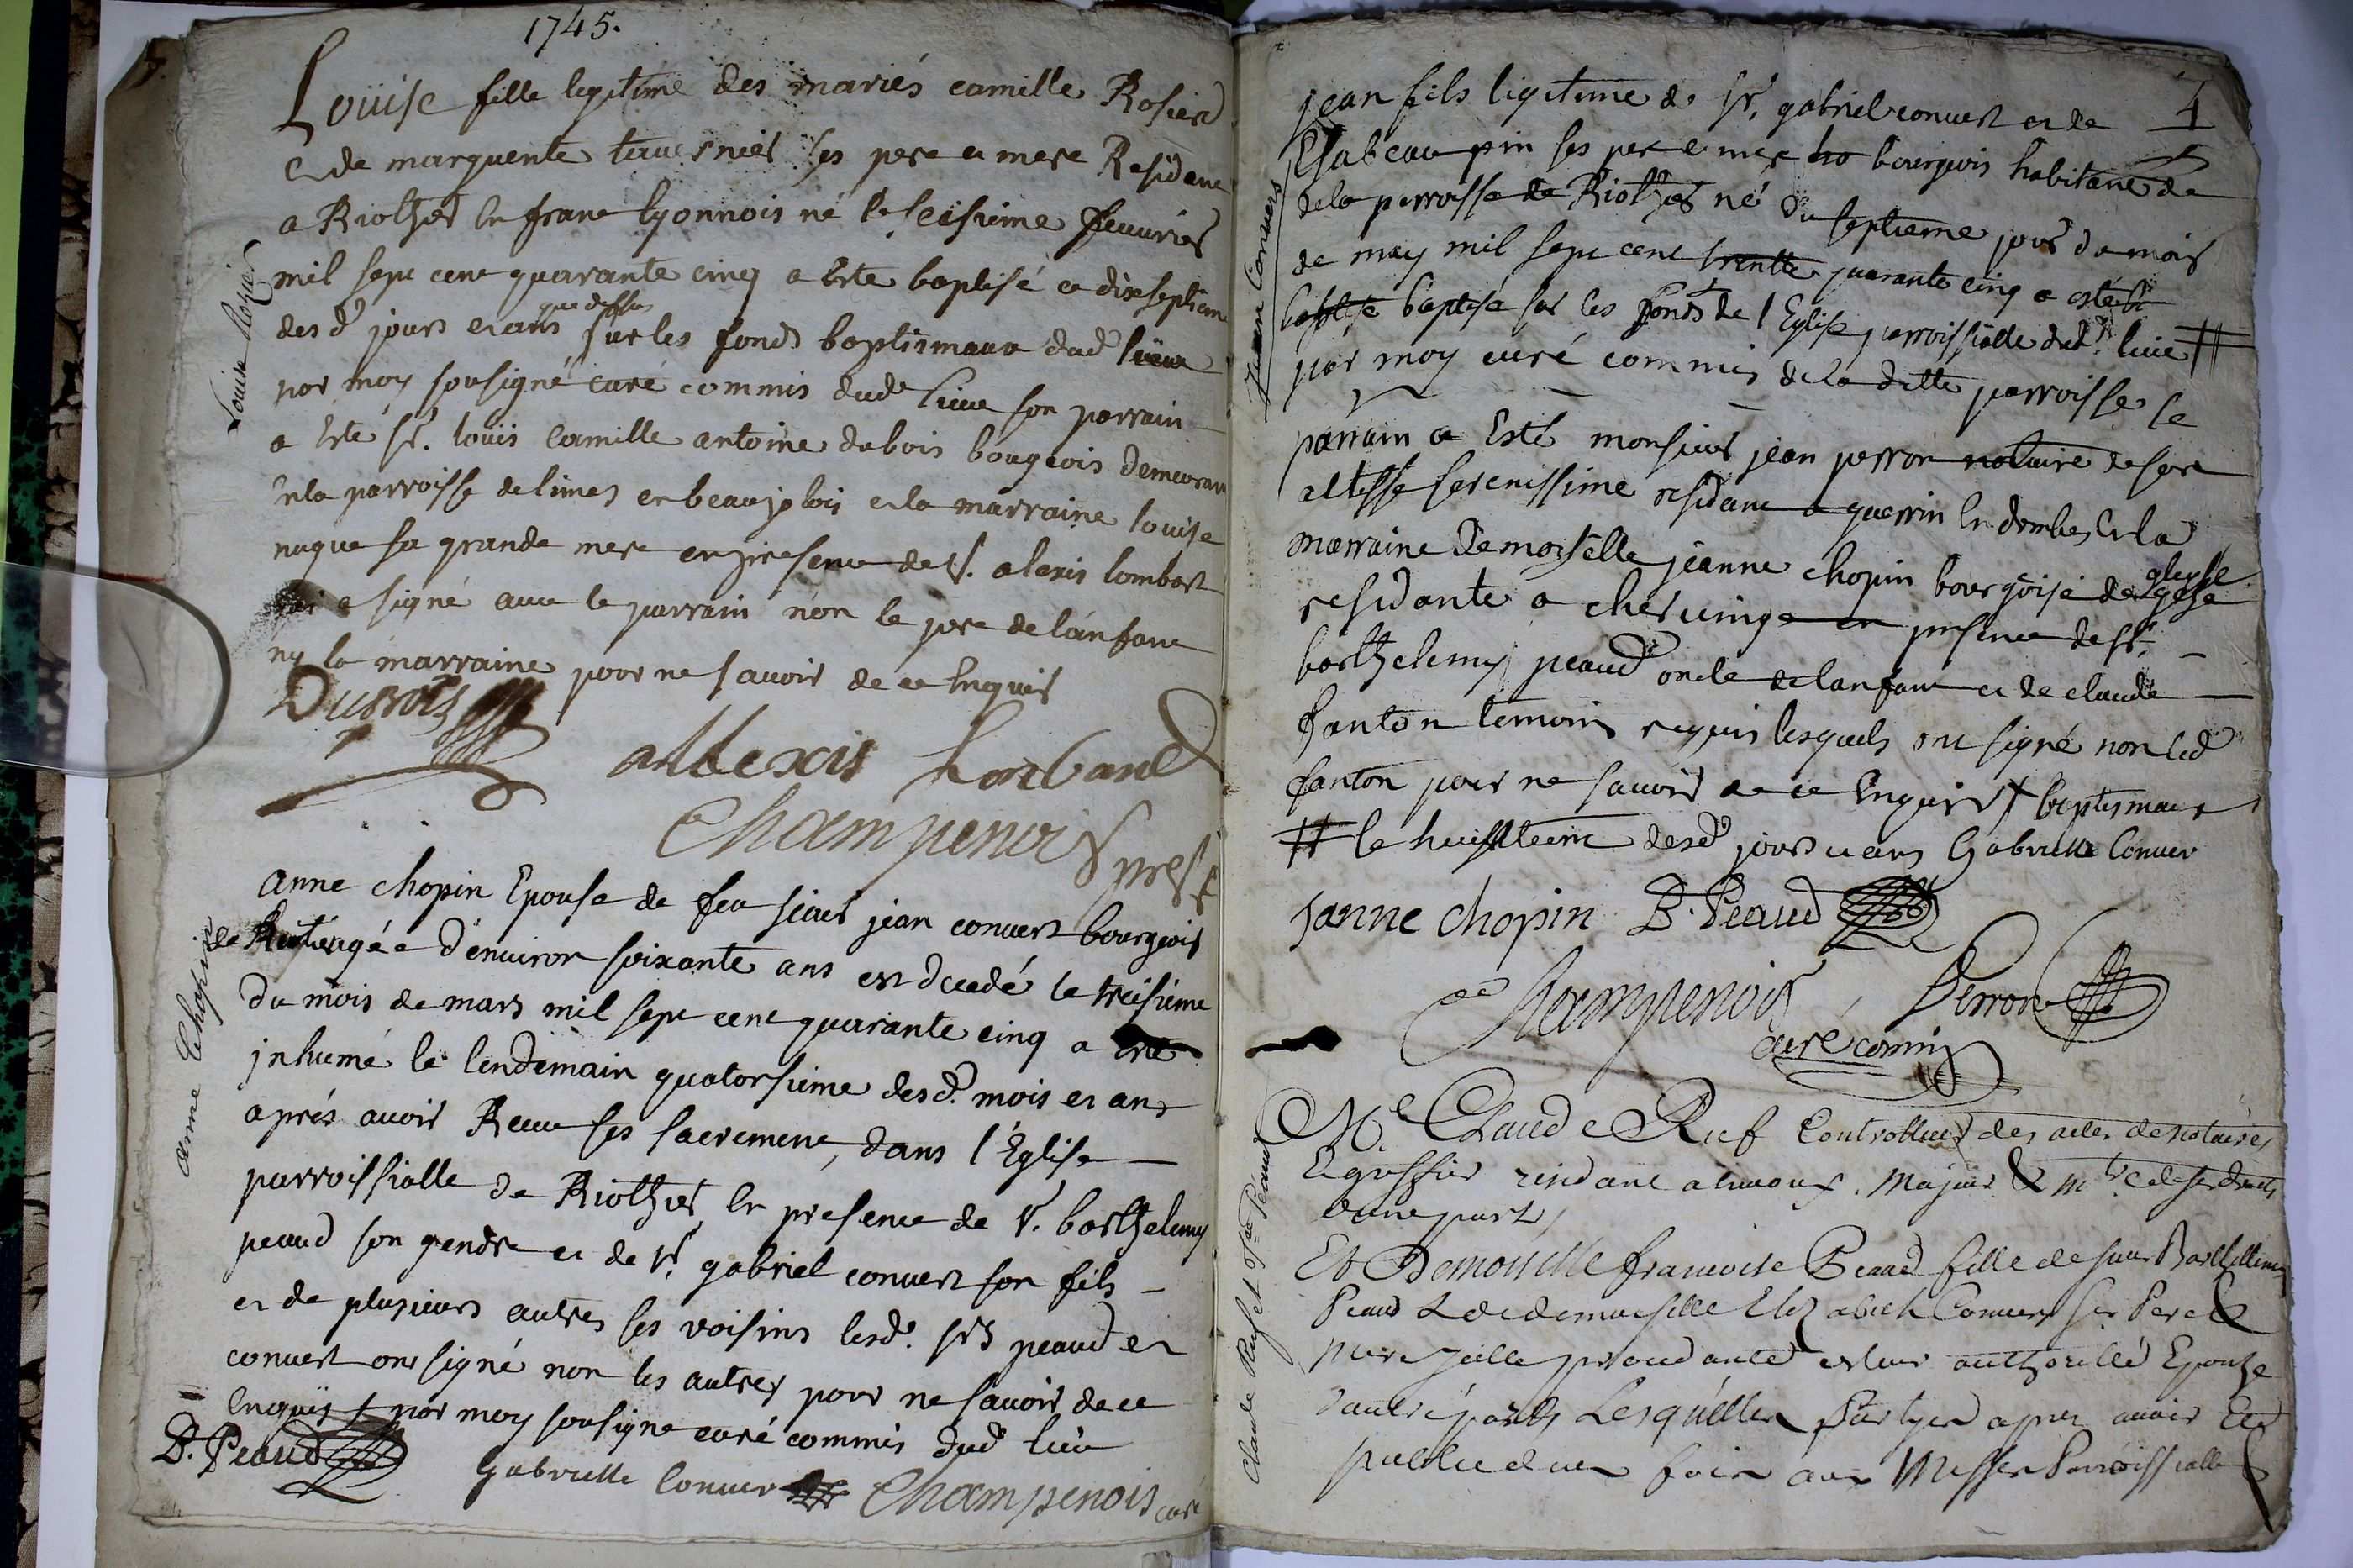 1745.
Louise fille legitime des mariés camille Rosier
et de marguente tavernier ses pere et mere Residant
a Riothier en franc lyonnois né le seisieme feuvrier
mil sept cent quarante cinq a este baptisé ce dixseptiem
que dessus
desd. jours et ans sur les fonds baptismaux dud lieu
par moy sousigné curé commis dud. lieu son parrain
a esté sr. louis camille antoine dubois bougeois demeurant
en la parroisse de limas en beaujolois et la marraine louise
nuque sa grande mere en presence de sr. alexis lombart
qui a signé avec le parrain non le pere de lanfant
ny la marraine pour ne savoir de ce enquis
Dubois
allexis Lonbard
Champenois pres
Louise Rozier
anne chopin Epouse de feu sieur jean convert bourgeois
de agée d'environ soixante ans est decedé le treisieme
du mois de mars mil sept cent quarante cinq a été
inhumé le lendemain quatorsieme desd. mois et an
aprés avoir Receu ses sacrement, dans l'Eglise
parroissialle de Riothier en presence de sr. barthelemy
peaud son gendre et de sr. gabriel convert son fils
et de plusieurs autres ses voisins lesd. srs peaud et
convert ont signé non les autres pour ne savoir de ce
enquis par moy sousigne curé commis dud lieu
B. Peaud
gabrielle Conver
Champenois curé
anne Chopin
4
jean fils ligitime de sr. gabriel convert et de
Elsabeau pin ses pere et mere bourgeois habitant de
de la parroisse de Riothier né du septieme jour du mois
de may mil sept cent trentte quarante cinq a esté
baptisé sur les fonds de l'Eglise parroissialle dud. lieu #
par moy curé commis de la ditte parroisse le
parrain a Esté monsieur jean perron notaire de son
altesse serenissime residant a guerrin en dombes et la
marraine demoiselle jeanne chopin bourgoise de
residante a chervinge en presence de sr.
barthelemy peaud oncle de lanfant et de claude
fanton temoins requis lesquels ont signé non led
fanton pour ne savoir de ce enquis + baptismaux
# le huisttiem desd jours et ans Gabrielle Conver
Janne chopin B. Peaud
Champenois Perron
curé commis
Jean Convers
Me Claude Ruf Controlleur des actes de notaires
Et greffier residant a majeur & mtre de ses droits
dune part,
Et Demoiselle francoise Peaud fille de sieur Barthellemy
Peaud & de demoiselle Elizabeth Convers ses Pere &
mere icelle procedante de leur authorité Epouse
dautre part Lesquelles partyes apres avoir Eté
publié deux fois aux Messes Parroissialle
Claude Ruf et Fse Peaud